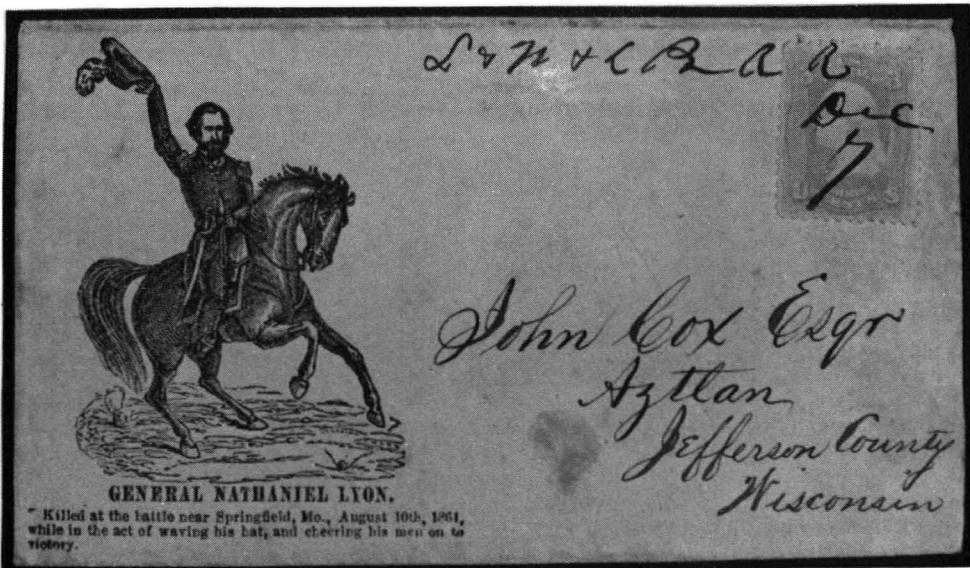 L & N & C R R
Dec
7
John Cox Esqr
Aztlan
Jefferson County
Wisconsin
GENERAL NATHANIEL LYON.
Killed at the battle near Springfield, Mo., August 10th, 1861,
while in the act of waving his hat, and cheering his men on to
victory.